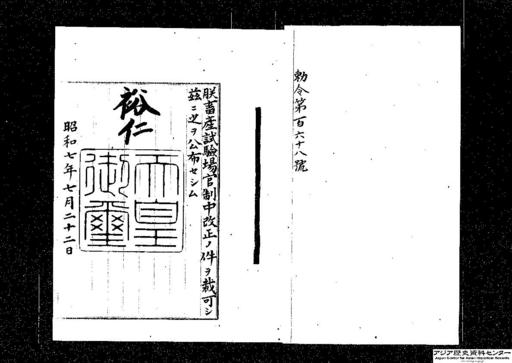 勅令第百六十八號
朕畜產試驗場官制中改正ノ件ヲ裁可シ
茲ニ之ヲ公布セシム
裕仁
天皇御璽
昭和七年七月二十二日
アジア歴史資料センター
Japan Center for Asian Historical Records